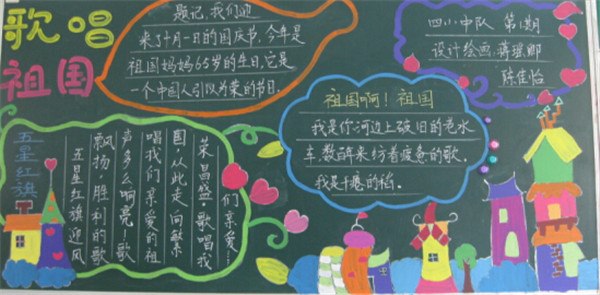 歌唱
祖国
题记、我们迎
来了十月一日的国庆节,今年是
祖国妈妈65岁的生日,它是
一个中国人引以为荣的节日.
四小中队 第1期
设计绘画:蒋琨娜
陈佳怡
祖国啊!祖国
我是你河边上破旧的老水
车,数百年来纺着疲惫的歌.
我是干瘪的稻.
五星红旗
五星红旗迎风
飘扬,胜利的歌
声多么响亮!歌
唱我们亲爱的祖
国,从此走向繁
荣昌盛.歌唱我
们亲爱